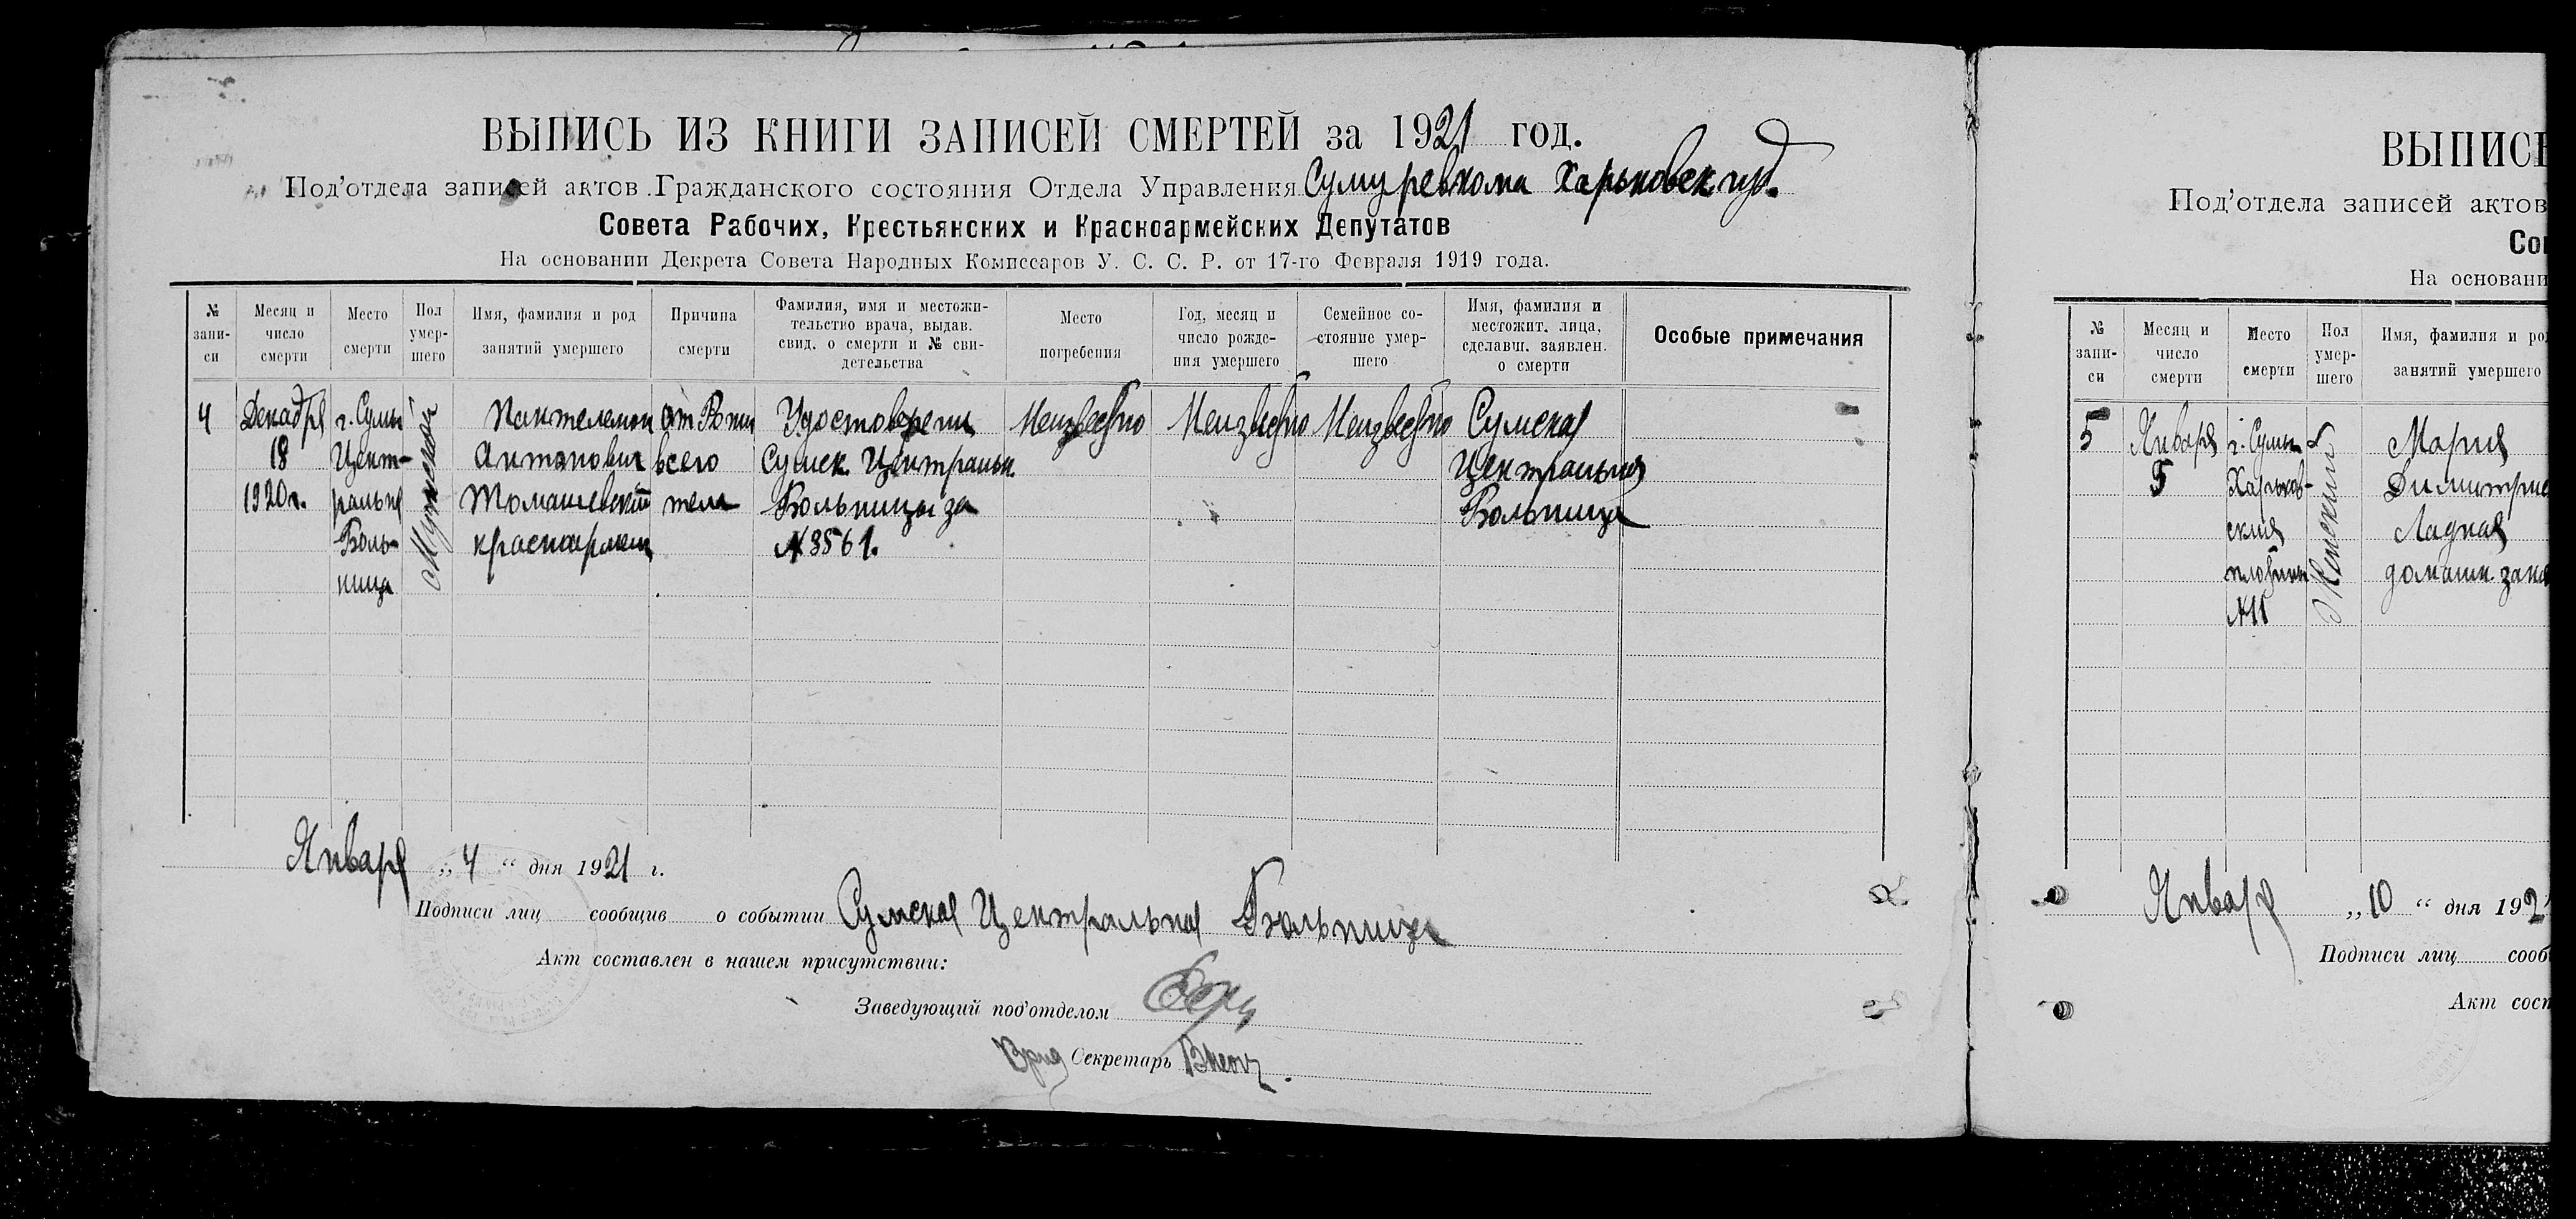 ВЫПИСЬ ИЗ КНИГИ ЗАПИСЕЙ СМЕРТЕЙ за 1921 год.
Под'отдела записей актов Гражданского состояния Отдела Управления Сумуревкома Харьковск губ.
Совета Рабочих, Крестьянских и Красноармейских Депутатов
На основании Декрета Совета Народных Комиссаров У. С. С. Р. от 17-го Февраля 1919 года.
№
запи-
си
Месяц и
число
смерти
Место
смерти
Пол
умер-
шего
Имя, фамилия и род
занятий умершего
Причина
смерти
Фамилия, имя и местожи-
тельство врача, выдав.
свид. о смерти и № сви-
детельства
Место
погребения
Год, месяц и
число рожде-
ния умершего
Семейное со-
стояние умер-
шего
Имя, фамилия и
местожит. лица,
сделавш. заявлен.
о смерти
Особые примечания
4
Декабря
18
1920г.
г. Сумы
Цент-
ральная
Боль-
ница
Мужской
Пантелемон
Антонович
Томашевский
красноармеец
от
всего
тела
Удостоверени
Сумск. Центральн.
Больницы за
№3561.
Неизвестно
Неизвестно
Неизвестно
Сумская
Центральная
Больница
Января „4“ дня 1921 г.
Подписи лиц сообщив о событии Сумская Центральная Больница
Акт составлен в нашем присутствии:
Заведующий под'отделом
Врид Секретарь
ВЫПИСЬ
Под'отдела записей актов
Сов
На основани
№
запи-
си
Месяц и
число
смерти
Место
смерти
Пол
умер-
шего
Имя, фамилия и род
занятий умершего
5
Января
5
г. Сумы
Харьков-
ская
№11
Женский
Мария
Димитрие
Ладная
домашн. заня
Января „10“ дня 192
Подписи лиц сооб
Акт сост